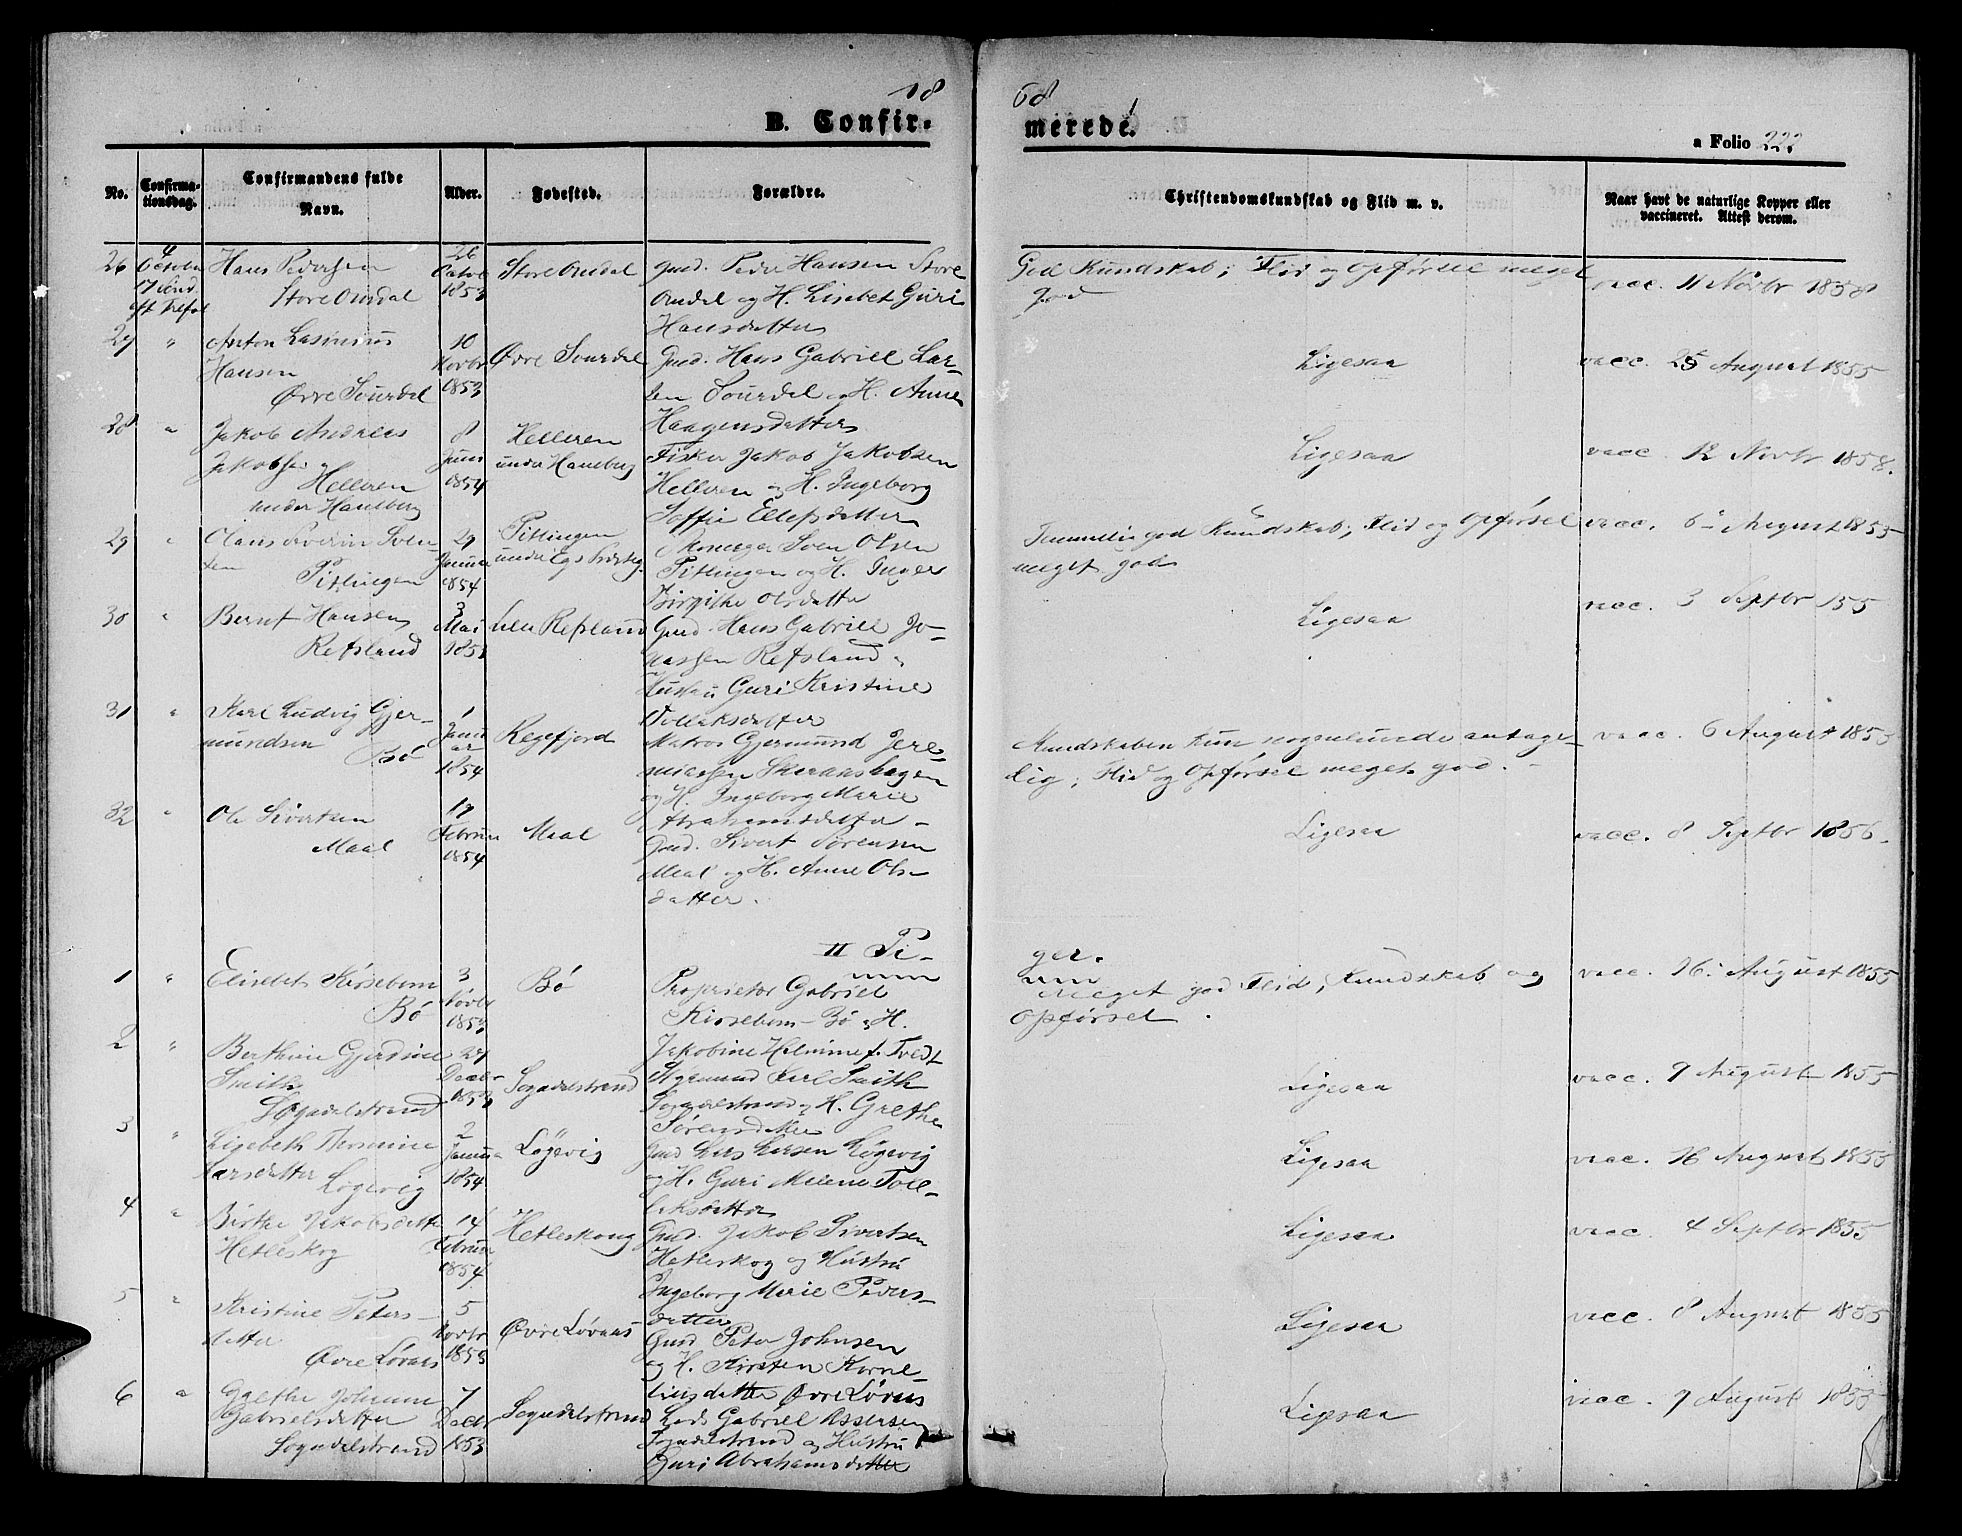 18
68
B. Confir-
merede.
a Folio 222
No.
Confirma-
tionsdag.
Confirmandens fulde
Navn.
Alder.
Fødested.
Forældre.
Christendomskundskab og Flid m. v.
Naar havt de naturlige Kopper eller
vaccineret. Attest derom.
26
4
October
17 Sønd.
eft Trefol
Hans Pedersen
Store Omdal
26
Octob
1853
Store Omdal
Gmd. Peder Hansen Store
Omdal og H. Lisebet Guri
Hansdatter
God Kundskab; Flid og Opførsel meget
god
vacc. 11 Novbr 1858
27
"
Anton Rasmus
Hansen
Øvre Sourdal
10
Novbr
1853
Øvre Sourdal
Gmd. Hans Gabriel Lar-
sen Sourdal og H. Anne
Haagensdatter
Ligesaa
vacc. 25 August 1855
28
"
Jakob Andreas
Jakobsen
Helleren
under Hauberg
8
Juni
1854
Helleren
under Hauberg
Fisker Jakob Jakobsen
Helleren og H. Ingeborg
Soffie Ellefsdatter
Ligesaa
vacc. 12 Novbr 1858.
29
"
Olaus Severin Sven-
sen
Pitlingen
29
Januar
1854
Pitlingen
under
Sven Olsen
Pitlingen og H. Inger
Birgithe Olsdatter
Temmelig god Kundskab; Flid og Opførsel
meget god
vacc. 6 August 1855
30
"
Bernt Hansen
Refsland
3
Mai
Lille Refsland
Gmd. Hans Gabriel Jo-
nassen Refsland
Hustru Guri Kristine
Tollaksdatter
Ligesaa
vacc. 3 Septbr 155
31
"
Karl Ludvig Gjer-
mundsen
Bø
1
Janu
ar
1854
Regefjord
Matros Gjermund Jere-
miassen
og H. Ingeborg Marie
Abrahamsdatter
Kundskaben kun nogenlunde antage-
lig; Flid og Opførsel meget god.
vacc. 6 August 1855
32
"
Ole Sivertsen
Maal
19
Februar
1854
Maal
Gmd. Sivert Sørensen
Maal og H. Anne Ols-
datter.
Ligesaa
vacc. 8 Septbr 1856.
II Pi-
ger.
1
"
Elisebet Kirsebom
Bø
3
Novbr
1853
Bø
Proprietær Gabriel
Kirsebom Bø og H.
Jakobine Helmine f. Tvedt
Meget god Flid, Kundskab og
Opførsel.
vacc. 16 August 1855
2
"
Berthine Gjerdine
Smith
Sogndalstrand
27
Decbr
1853
Sogndalstrand
Karl Smith
Sogndalstrand og H. Grethe
Sørensdatter
Ligesaa
vacc. 9 August 1855
3
"
Lisebeth Hermine
Larsdatter
Løgevig
2
Januar
1854
Løgevig
Gmd Lars Larsen Løgevig
og H. Guri Malene Tol-
laksdatter
Ligesaa
vacc. 16 August 1855
4
"
Birthe Jakobsdatter
Hetleskog
14
Februar
1854
Hetleskoug
Gmd. Jakob Sivertsen
Hetleskog og Hustru
Ingeborg Marie Peders-
datter
Ligesaa
vacc. 4 Septbr 1855
5
"
Kristine Peters-
datter
Øvre Løvaas
5
Novbr
1853
Øvre Løvaas
Gmd Peter Johnsen
og H. Kirsten Korne-
liusdatter Øvre Løvaas
Ligesaa
vacc. 8 August 1855
6
"
Grethe Johanne
Gabrielsdatter
Sogndalstrand
7
Decbr
1853
Sogndalstrand
Lods Gabriel Assersen
Sogndalstrand og Hustru
Guri Abrahamsdatter
Ligesaa
vacc. 9 August 1855